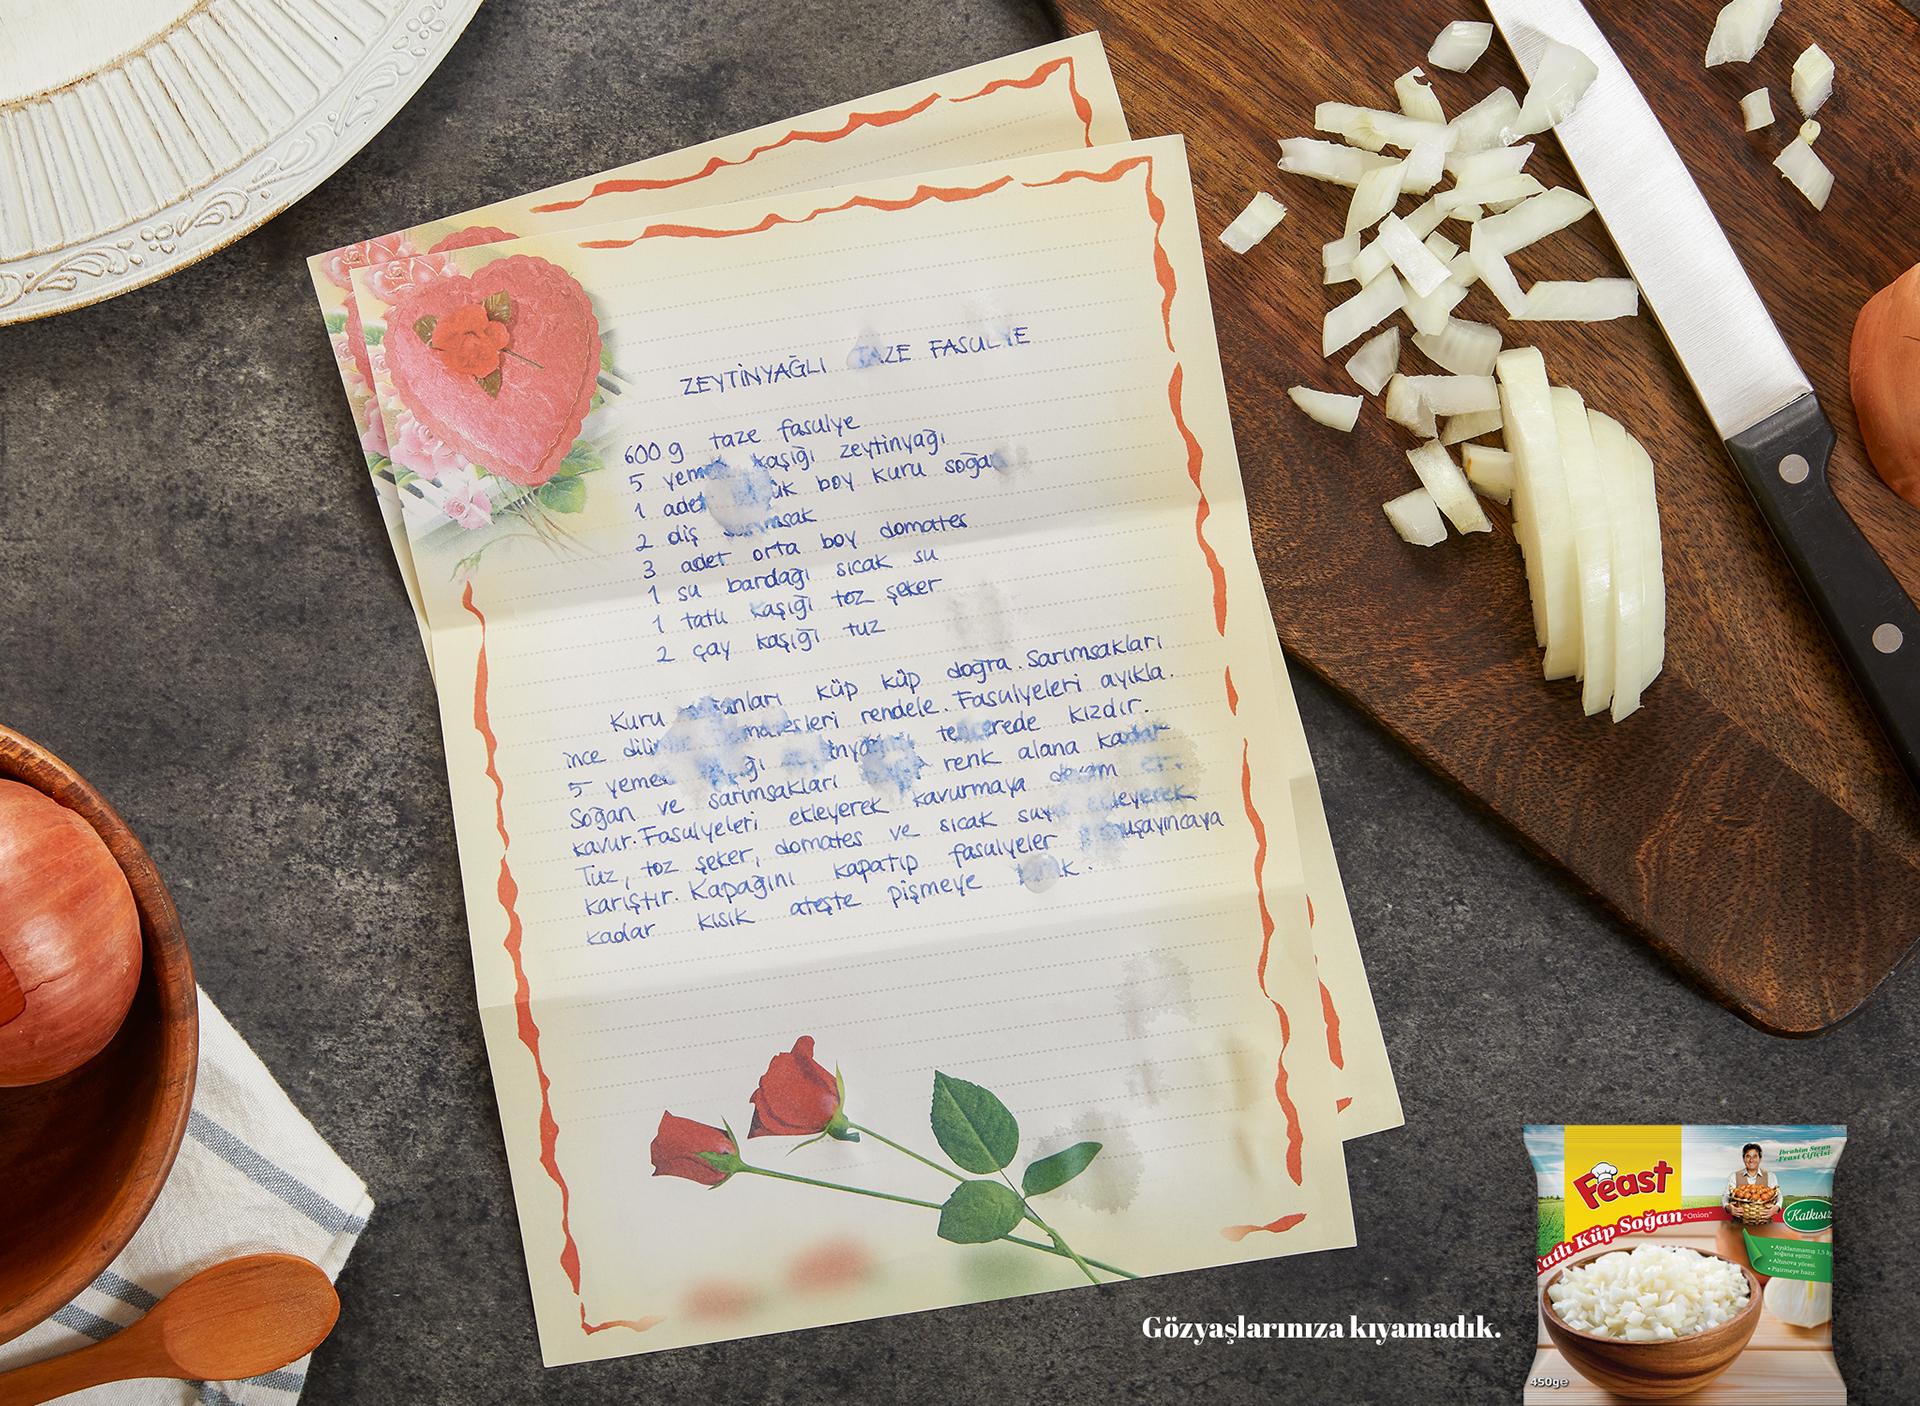 ZEYTİNYAĞLI TAZE FASULYE
600 g taze fasulye
5 yemek kaşığı zeytinyağı
1 adet boy kuru soğan
2 diş sarımsak
3 adet orta boy domates
1 su bardağı sıcak su
1 tatlı kaşığı toz şeker
2 çay kaşığı tuz
Kuru soğanları küp küp doğra. Sarımsakları
ince rendele. Fasulyeleri ayıkla.
5 yemek tencerede kızdır.
Soğan ve sarımsakları renk alana kadar
kavur. Fasulyeleri ekleyerek kavurmaya devam et.
Tuz, toz şeker, domates ve sıcak suyu ekleyerek
karıştır. Kapağını kapatıp fasulyeler yumuşayıncaya
kadar kısık ateşte pişmeye bırak.
Gözyaşlarınıza kıyamadık.
Feast
Tatlı Küp Soğan "Onion"
İbrahim Sezan
Feast Çiftçisi
Katkısız
• Ayıklanmamış 1,5 kg
soğana eşittir.
• Altınova yöresi.
• Pişirmeye hazır.
450ge